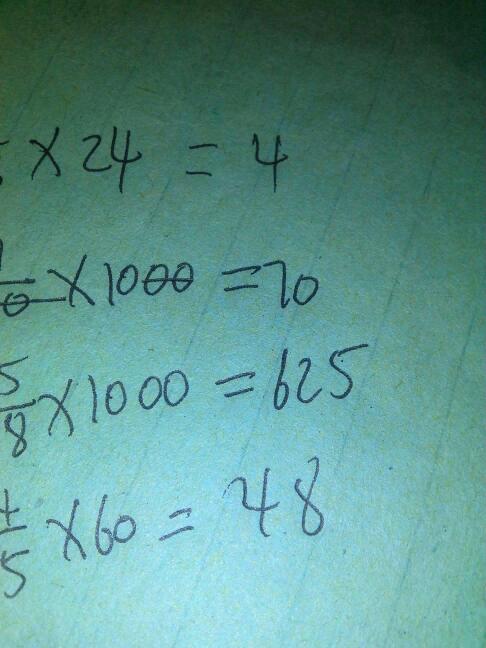 × 24 = 4
× 1000 = 70
5/8 × 1000 = 625
/5 × 60 = 48